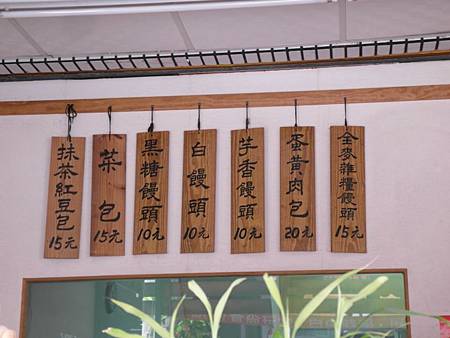 抹茶紅豆包
15元
菜包
15元
黑糖饅頭
10元
白饅頭
10元
芋香饅頭
10元
蛋黃肉包
20元
全麥雜糧饅頭
15元